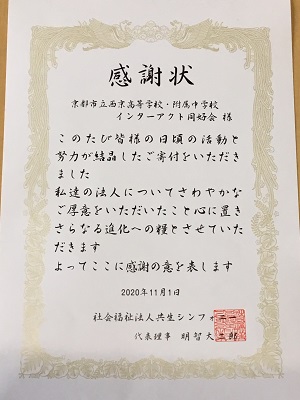 感謝状
京都市立西京高等学校・附属中学校
インターアクト同好会 様
このたび皆様の日頃の活動と
努力が結晶したご寄付をいただき
ました
私達の法人についてさわやかな
ご厚意をいただいたこと心に置き
さらなる進化への糧とさせていた
だきます
よってここに感謝の意を表します
2020年11月1日
社会福祉法人共生シンフォニー
代表理事 明智大二郎